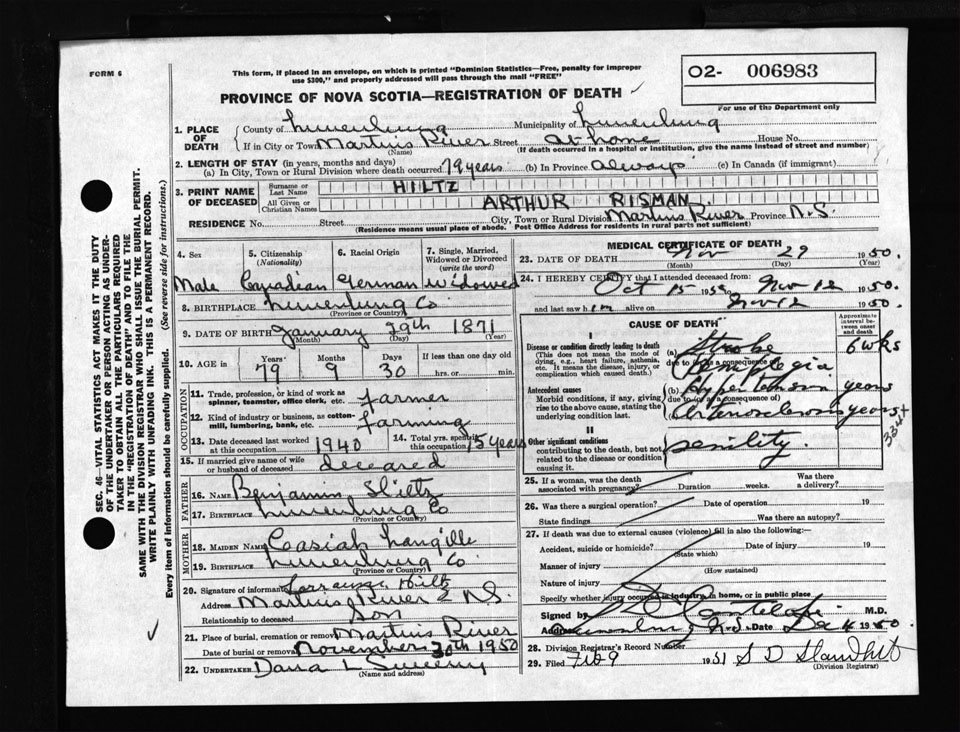 FORM 6
This form, if placed in an envelope, on which is printed "Dominion Statistics—Free, penalty for improper
use $300," and properly addressed will pass through the mail "FREE"
O2- 006983
For use of the Department only
PROVINCE OF NOVA SCOTIA—REGISTRATION OF DEATH
1. PLACE OF DEATH
County of Lunenburg Municipality of Lunenburg
If in City or Town Martins River Street at home House No.
(Name) (If death occurred in a hospital or institution, give the name instead of street and number)
2. LENGTH OF STAY (in years, months and days)
(a) In City, Town or Rural Division where death occurred 79 years (b) In Province always (c) In Canada (if immigrant)
3. PRINT NAME OF DECEASED
Surname or Last Name HILTZ
All Given or Christian Names ARTHUR RISMAN
RESIDENCE No. Street City, Town or Rural Division Martins River Province N.S.
(Residence means usual place of abode. Post Office Address for residents in rural parts not sufficient)
SEC. 46—VITAL STATISTICS ACT MAKES IT THE DUTY
OF THE UNDERTAKER OR PERSON ACTING AS UNDER-
TAKER TO OBTAIN ALL THE PARTICULARS REQUIRED
IN THE "REGISTRATION OF DEATH" AND TO FILE THE
SAME WITH THE DIVISION REGISTRAR WHO SHALL ISSUE THE BURIAL PERMIT.
WRITE PLAINLY WITH UNFADING INK. THIS IS A PERMANENT RECORD.
Every item of information should be carefully supplied. (See reverse side for instructions.)
4. Sex 5. Citizenship (Nationality) 6. Racial Origin 7. Single, Married, Widowed or Divorced (write the word)
Male Canadian German widowed
8. BIRTHPLACE Lunenburg Co
(Province or Country)
9. DATE OF BIRTH January 29th 1871
(Month) (Day) (Year)
10. AGE in Years Months Days If less than one day old
79 9 30 hrs. or min.
OCCUPATION
11. Trade, profession, or kind of work as
spinner, teamster, office clerk, etc. farmer
12. Kind of industry or business, as cotton-
mill, lumbering, bank, etc. farming
13. Date deceased last worked at this occupation 1940 14. Total yrs. spent in this occupation 75 years
15. If married give name of wife or husband of deceased deceased
FATHER
16. NAME Benjamin Hiltz
17. BIRTHPLACE Lunenburg Co
(Province or Country)
MOTHER
18. MAIDEN NAME Casiah Langille
19. BIRTHPLACE Lunenburg Co
(Province or Country)
20. Signature of informant Hiltz
Address Martins River N.S.
Relationship to deceased Son
21. Place of burial, cremation or removal Martins River
Date of burial or removal November 30th 1950
22. UNDERTAKER Dana L Sweeny
(Name and address)
MEDICAL CERTIFICATE OF DEATH
23. DATE OF DEATH Nov 29 1950
(Month) (Day) (Year)
24. I HEREBY CERTIFY that I attended deceased from
Oct 15 1950 Nov 12 1950
and last saw him alive on Nov 12 1950
CAUSE OF DEATH
Approximate interval between onset and death
I
Disease or condition directly leading to death
(This does not mean the mode of
dying, e.g., heart failure, asthenia,
etc. It means the disease, injury, or
complication which caused death.)
(a) Stroke 6 wks
due to (or as a consequence of) Hemiplegia
Antecedent causes
Morbid conditions, if any, giving
rise to the above cause, stating the
underlying condition last.
(b) Hypertension years
due to (or as a consequence of)
Arteriosclerosis years +
334
II
Other significant conditions
contributing to the death, but not
related to the disease or condition
causing it.
senility
25. If a woman, was the death associated with pregnancy? Duration weeks. Was there a delivery?
26. Was there a surgical operation? Date of operation 19
State findings Was there an autopsy?
27. If death was due to external causes (violence) fill in also the following:
Accident, suicide or homicide? Date of injury 19
(State which)
Manner of injury
(How sustained)
Nature of injury
Specify whether injury occurred in industry, in home, or in public place
Signed by M.D.
Address Lunenburg N.S. Date Dec 4 1950
28. Division Registrar's Record Number
29. Filed Feb 9 1951 S D
(Division Registrar)